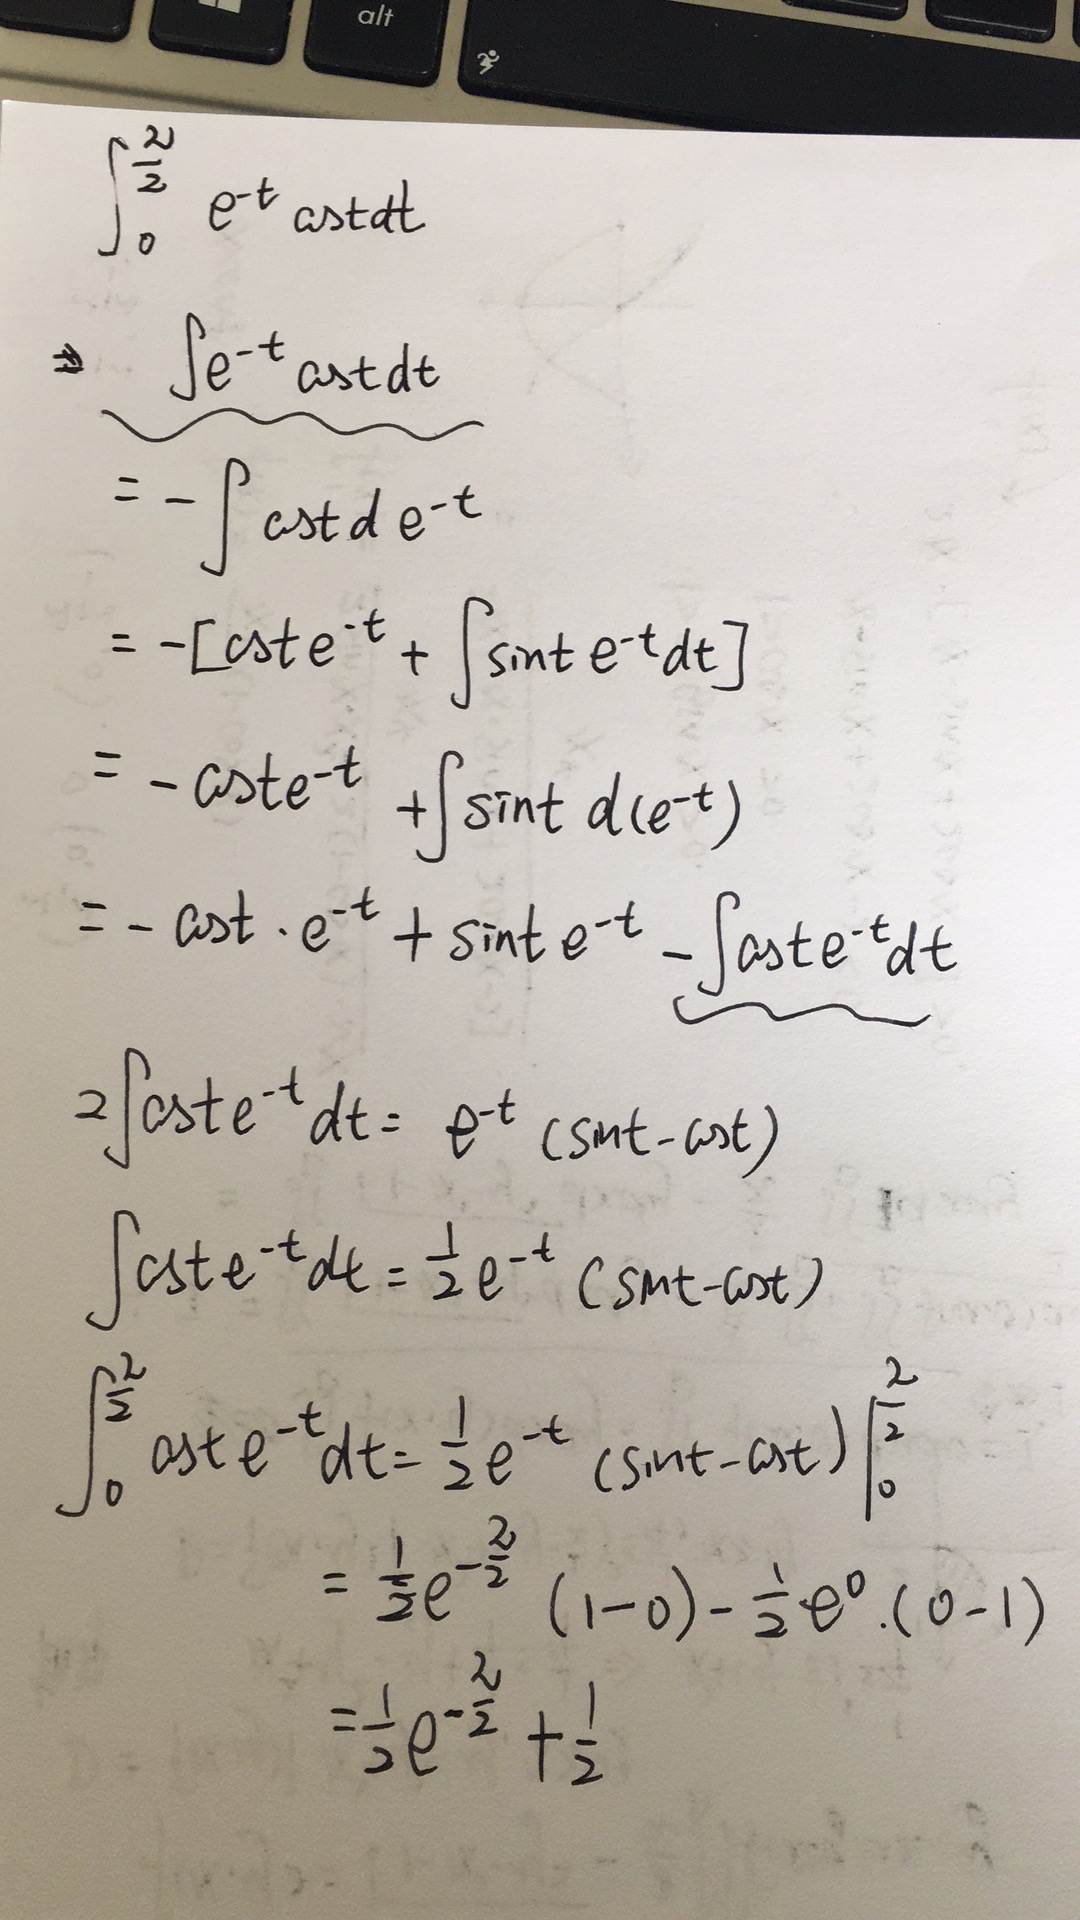 alt
∫₀^(π/2) e^(-t) cost dt
⇒ ∫e^(-t) cost dt
= -∫cost d e^(-t)
= -[cost e^(-t) + ∫sint e^(-t) dt]
= -cost e^(-t) + ∫sint d(e^(-t))
= -cost · e^(-t) + sint e^(-t) - ∫cost e^(-t) dt
2∫cost e^(-t) dt = e^(-t) (sint-cost)
∫cost e^(-t) dt = 1/2 e^(-t) (sint-cost)
∫₀^(π/2) cost e^(-t) dt = 1/2 e^(-t) (sint-cost) |₀^(π/2)
= 1/2 e^(-π/2) (1-0) - 1/2 e^0 · (0-1)
= 1/2 e^(-π/2) + 1/2